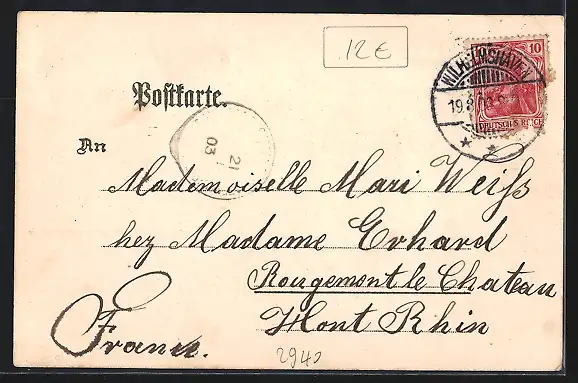 12€
10
WILHELMSHAVEN
19 8 03
DEUTSCHES REICH
Postkarte.
21
03
An
Mademoiselle Mari Weiss
hez Madame Erhard
Rougemont le Chateau
Mont Rhin
France.
2940